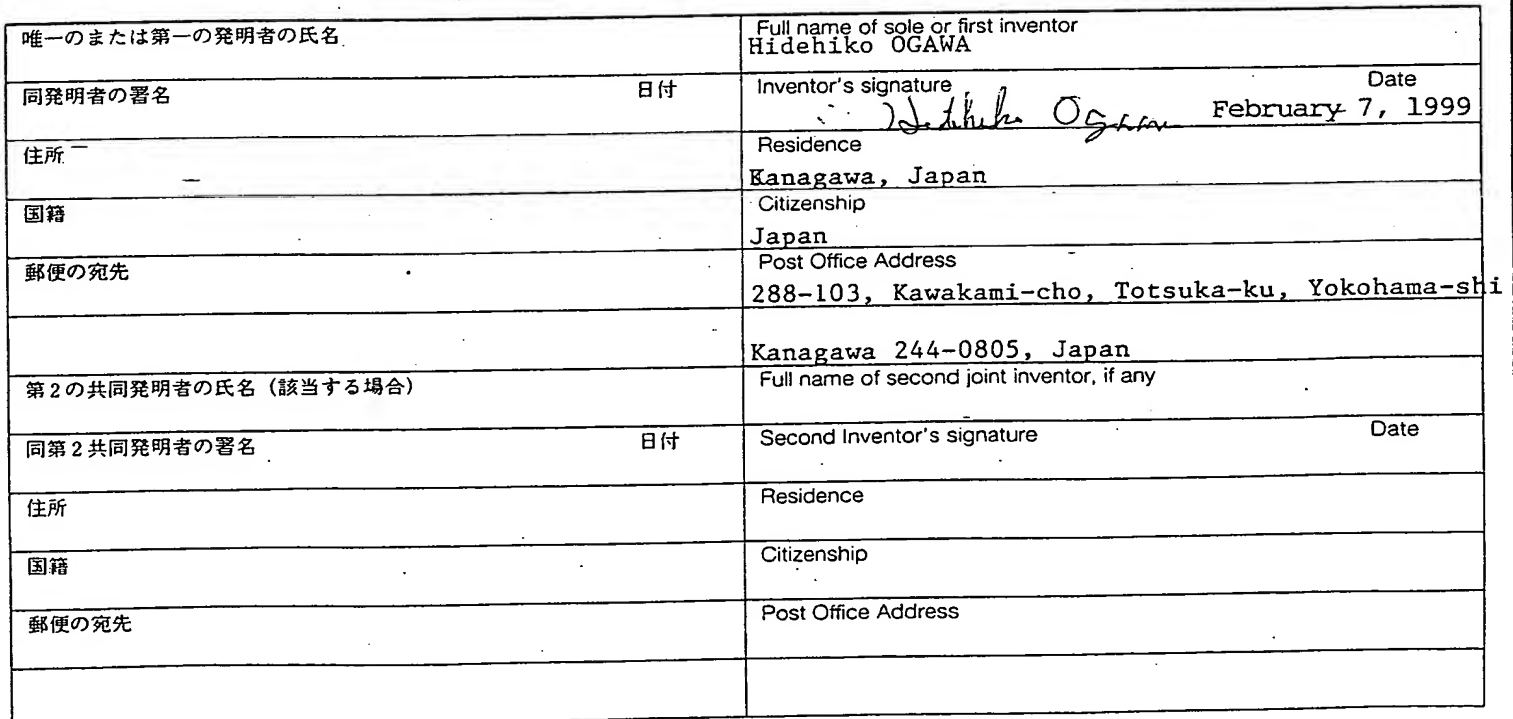 唯一のまたは第一の発明者の氏名
Full name of sole or first inventor
Hidehiko OGAWA
同発明者の署名 日付
Inventor's signature Date
Hidehiko Ogawa February 7, 1999
住所
Residence
Kanagawa, Japan
国籍
Citizenship
Japan
郵便の宛先
Post Office Address
288-103, Kawakami-cho, Totsuka-ku, Yokohama-shi
Kanagawa 244-0805, Japan
第2の共同発明者の氏名（該当する場合）
Full name of second joint inventor, if any
同第2共同発明者の署名 日付
Second Inventor's signature Date
住所
Residence
国籍
Citizenship
郵便の宛先
Post Office Address